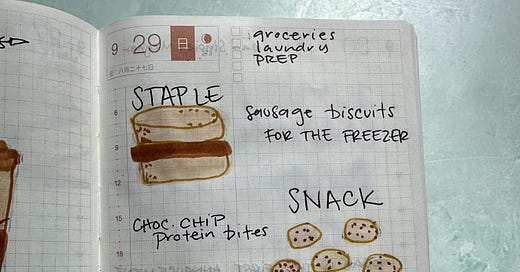 9 29 日
groceries
laundry
PREP
八月二十七日
STAPLE
6
sausage biscuits
FOR THE FREEZER
9
12
SNACK
15
CHOC. CHIP
Protein bites
18